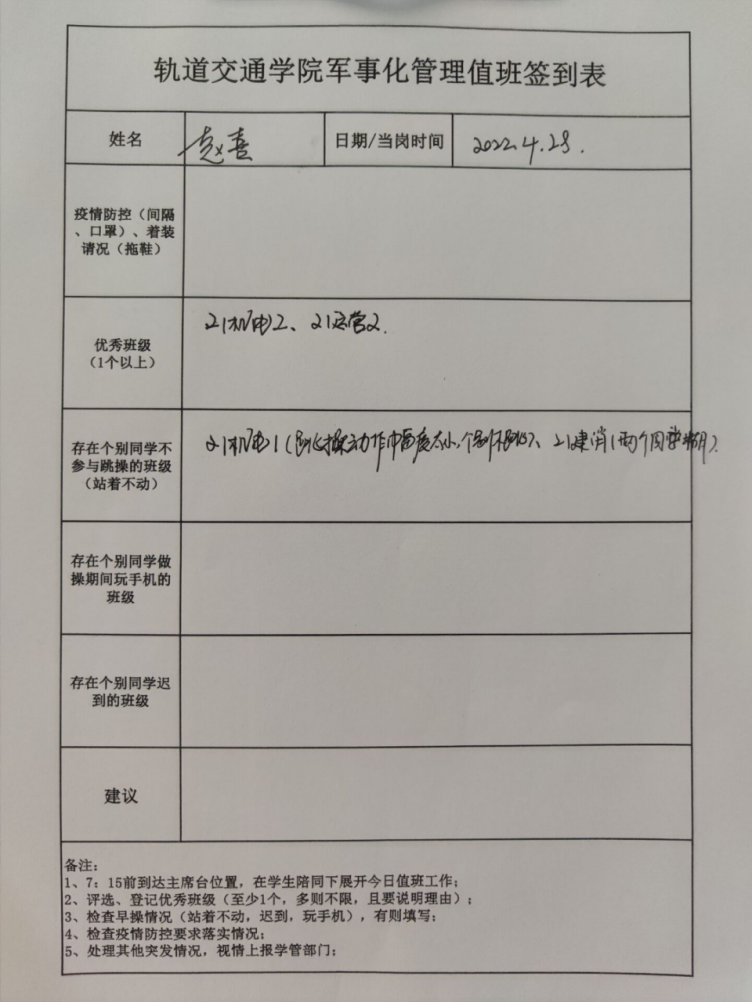 轨道交通学院军事化管理值班签到表
姓名 赵喜 日期/当岗时间 2022.4.28.
疫情防控（间隔
、口罩）、着装
请况（拖鞋）
优秀班级
（1个以上）
21机电2、21运营2.
存在个别同学不
参与跳操的班级
（站着不动）
21机电1（ 操动作幅度太小、个别 ）、21建消（两个同学 ）.
存在个别同学做
操期间玩手机的
班级
存在个别同学迟
到的班级
建议
备注：
1、7：15前到达主席台位置，在学生陪同下展开今日值班工作；
2、评选、登记优秀班级（至少1个，多则不限，且要说明理由）；
3、检查早操情况（站着不动，迟到，玩手机），有则填写；
4、检查疫情防控要求落实情况；
5、处理其他突发情况，视情上报学管部门；